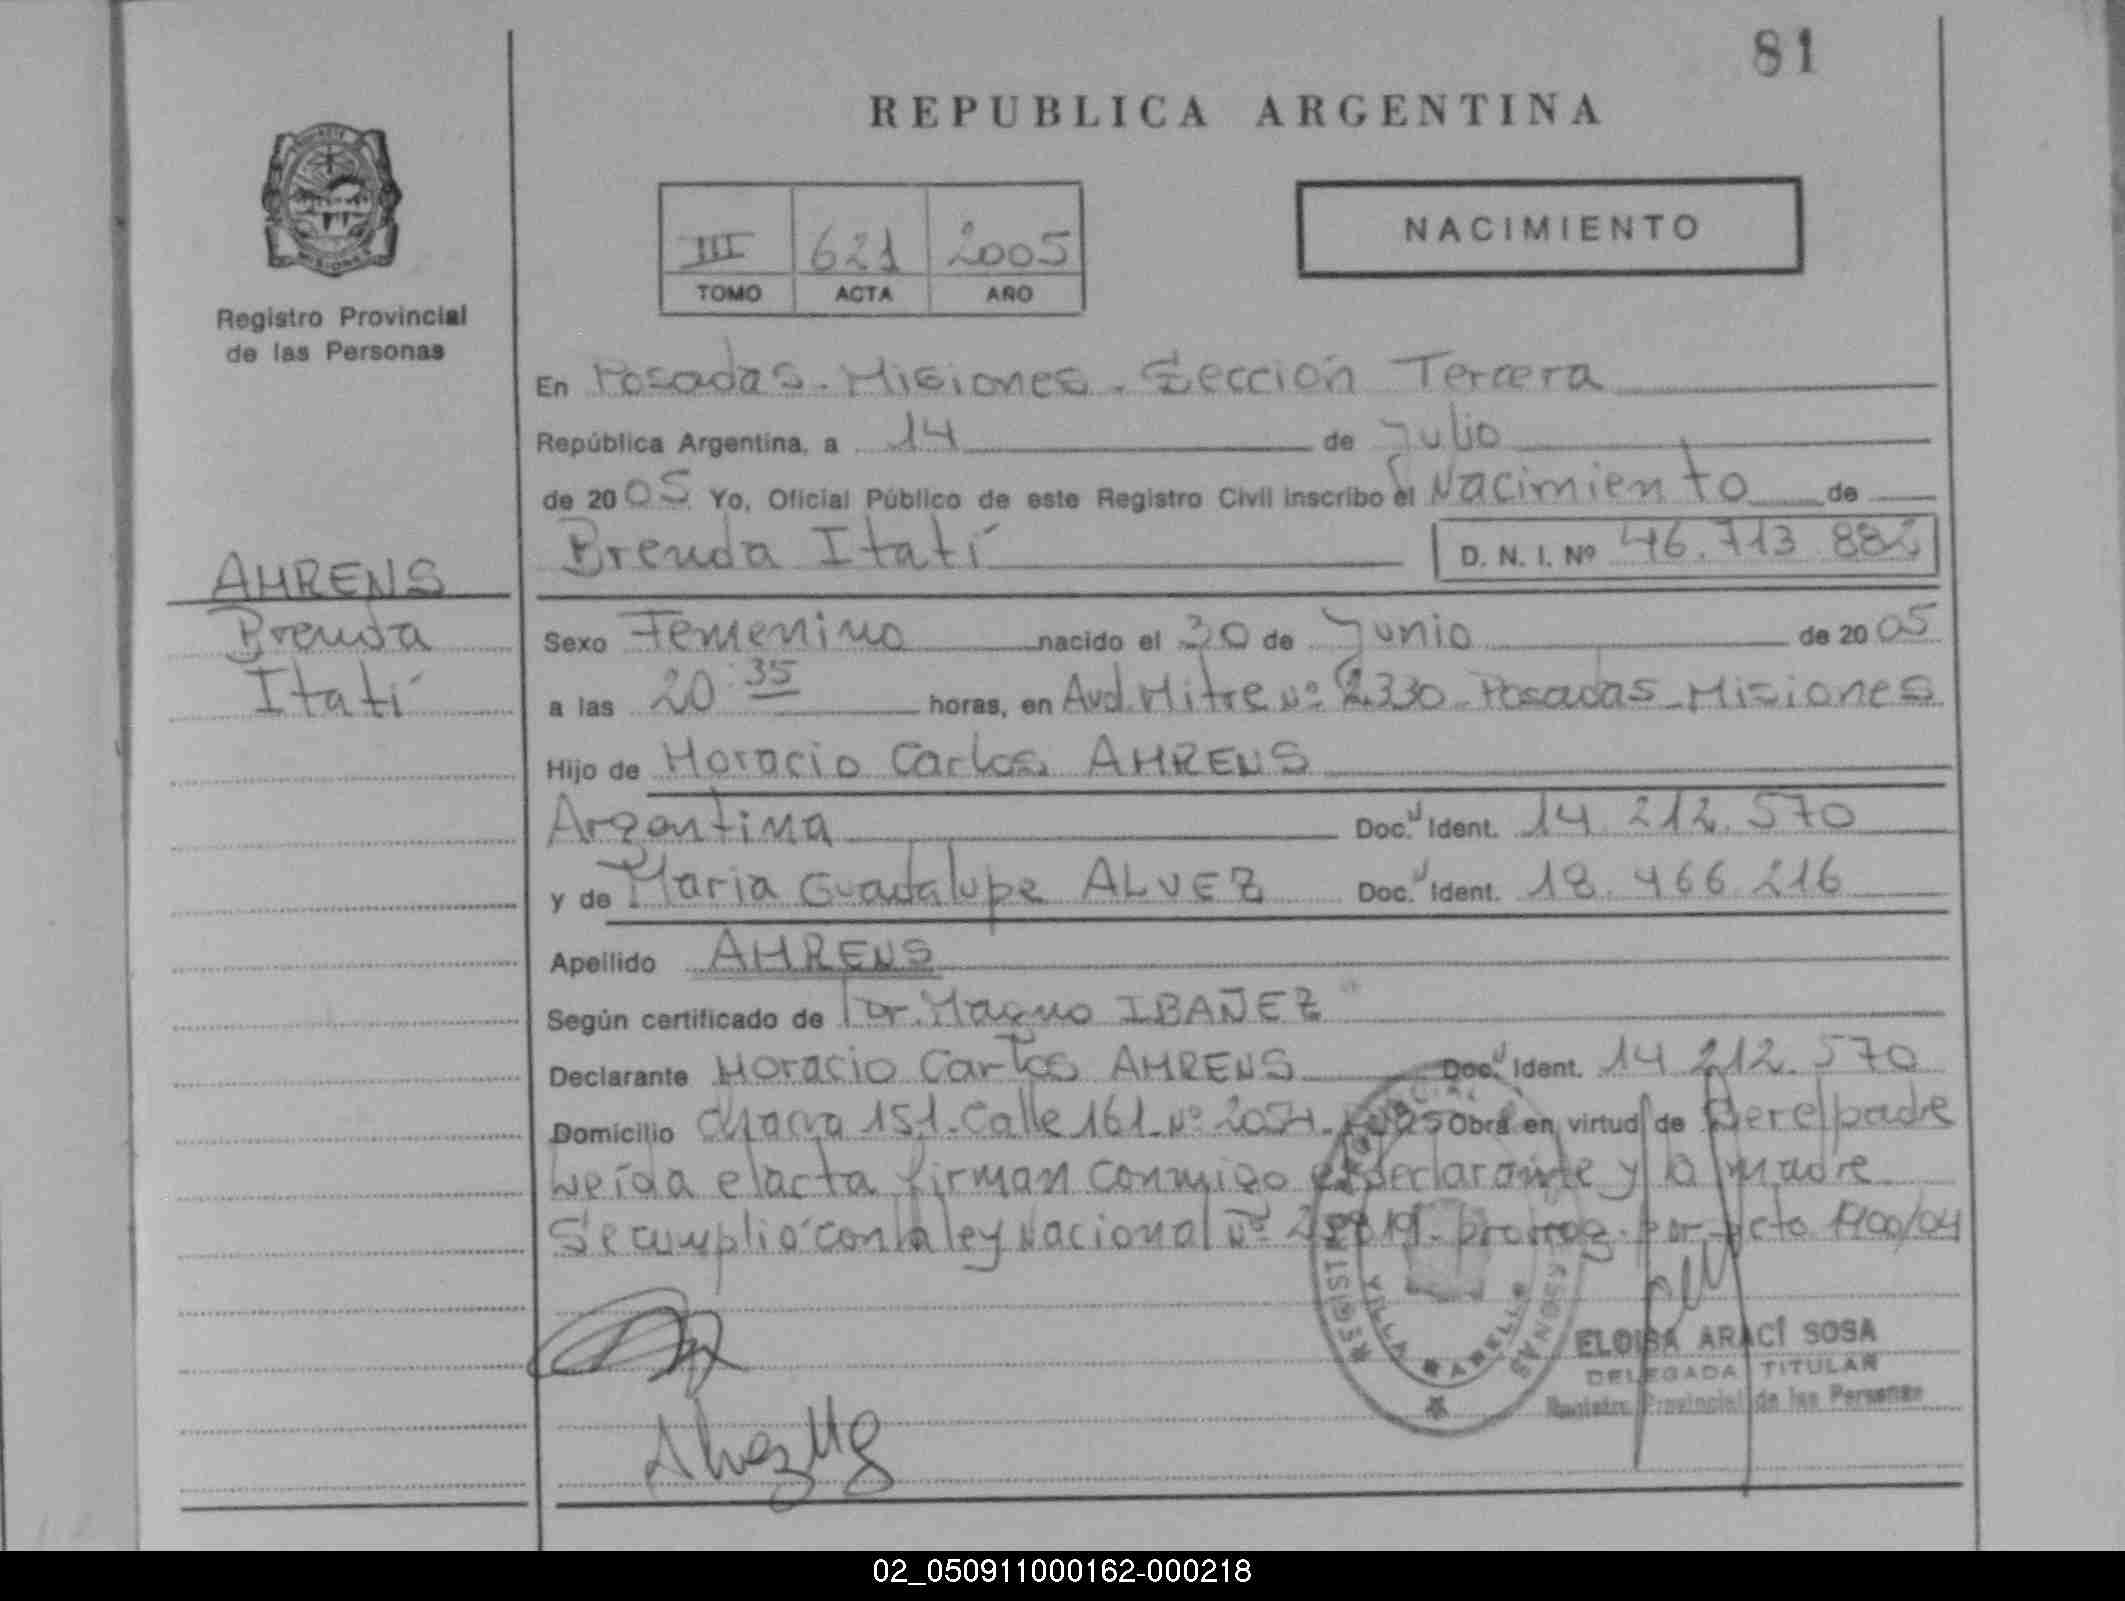 81
REPUBLICA ARGENTINA
MISIONES
Registro Provincial
de las Personas
III 621 2005
TOMO ACTA AÑO
NACIMIENTO
En Posadas - Misiones - Sección Tercera
República Argentina, a 14 de Julio
de 2005 Yo, Oficial Público de este Registro Civil inscribo el Nacimiento de
Brenda Itatí D. N. I. Nº 46.713.882
AHRENS
Brenda
Itatí
Sexo Femenino nacido el 30 de Junio de 2005
a las 20:35 horas, en Avd. Mitre Nº 2330 - Posadas - Misiones
Hijo de Horacio Carlos AHRENS
Argentina Doc. Ident. 14.212.570
y de Maria Guadalupe ALVEZ Doc. Ident. 18.466.216
Apellido AHRENS
Según certificado de Dr. Magno IBAÑEZ
Declarante Horacio Carlos AHRENS Doc. Ident. 14.212.570
Domicilio chacra 151 - Calle 161 - Nº Obra en virtud de ser el padre
Leída el acta firman conmigo el declarante y la madre
Se cumplió con la ley Nacional Nº prorrog. por Dcto 1700/04
REGISTRO PERSONAS
VILLA
ELOISA ARACÍ SOSA
DELEGADA TITULAR
Registro Provincial de las Personas
Alvez MG
02_050911000162-000218